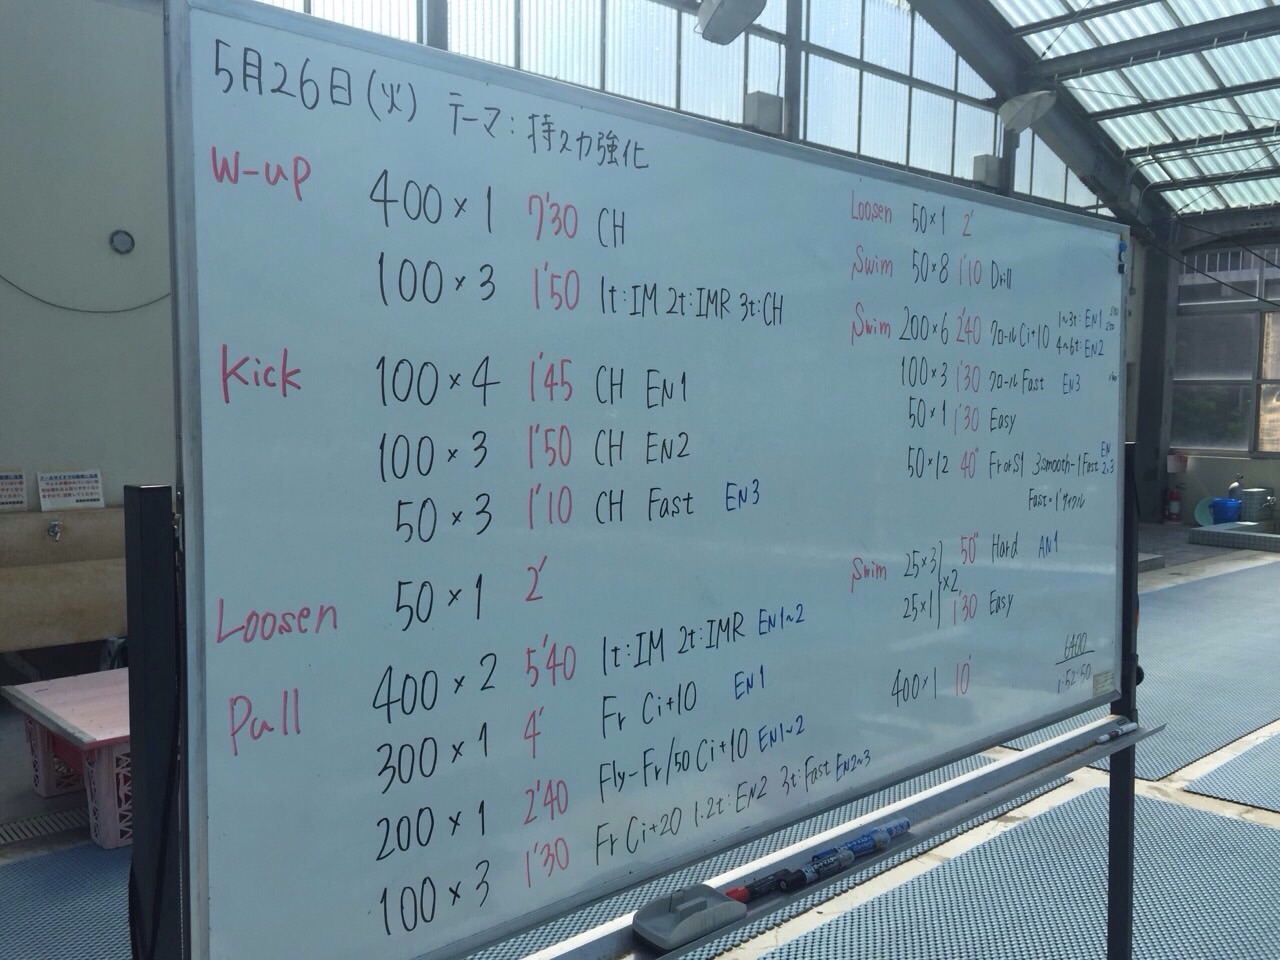 5月26日(火) テーマ:持久力強化
W-up 400×1 7'30 CH
100×3 1'50 1t:IM 2t:IMR 3t:CH
Kick 100×4 1'45 CH EN1
100×3 1'50 CH EN2
50×3 1'10 CH Fast EN3
Loosen 50×1 2'
Pull 400×2 5'40 1t:IM 2t:IMR EN1~2
300×1 4' Fr Ci+10 EN1
200×1 2'40 Fly-Fr/50 Ci+10 EN1~2
100×3 1'30 Fr Ci+20 1.2t:EN2 3t:Fast EN2~3
Loosen 50×1 2'
Swim 50×8 1'10 Drill
Swim 200×6 2'40 クロール Ci+10 1~3t:EN1
4~6t:EN2
100×3 1'30 クロール Fast EN3
50×1 1'30 Easy
50×12 40" Fr or S1 3smooth-1Fast EN2.3
Fast=1'サイクル
Swim 25×3 50" Hard AN1
×2
25×1 1'30 Easy
400×1 10'
6400
1:52:50